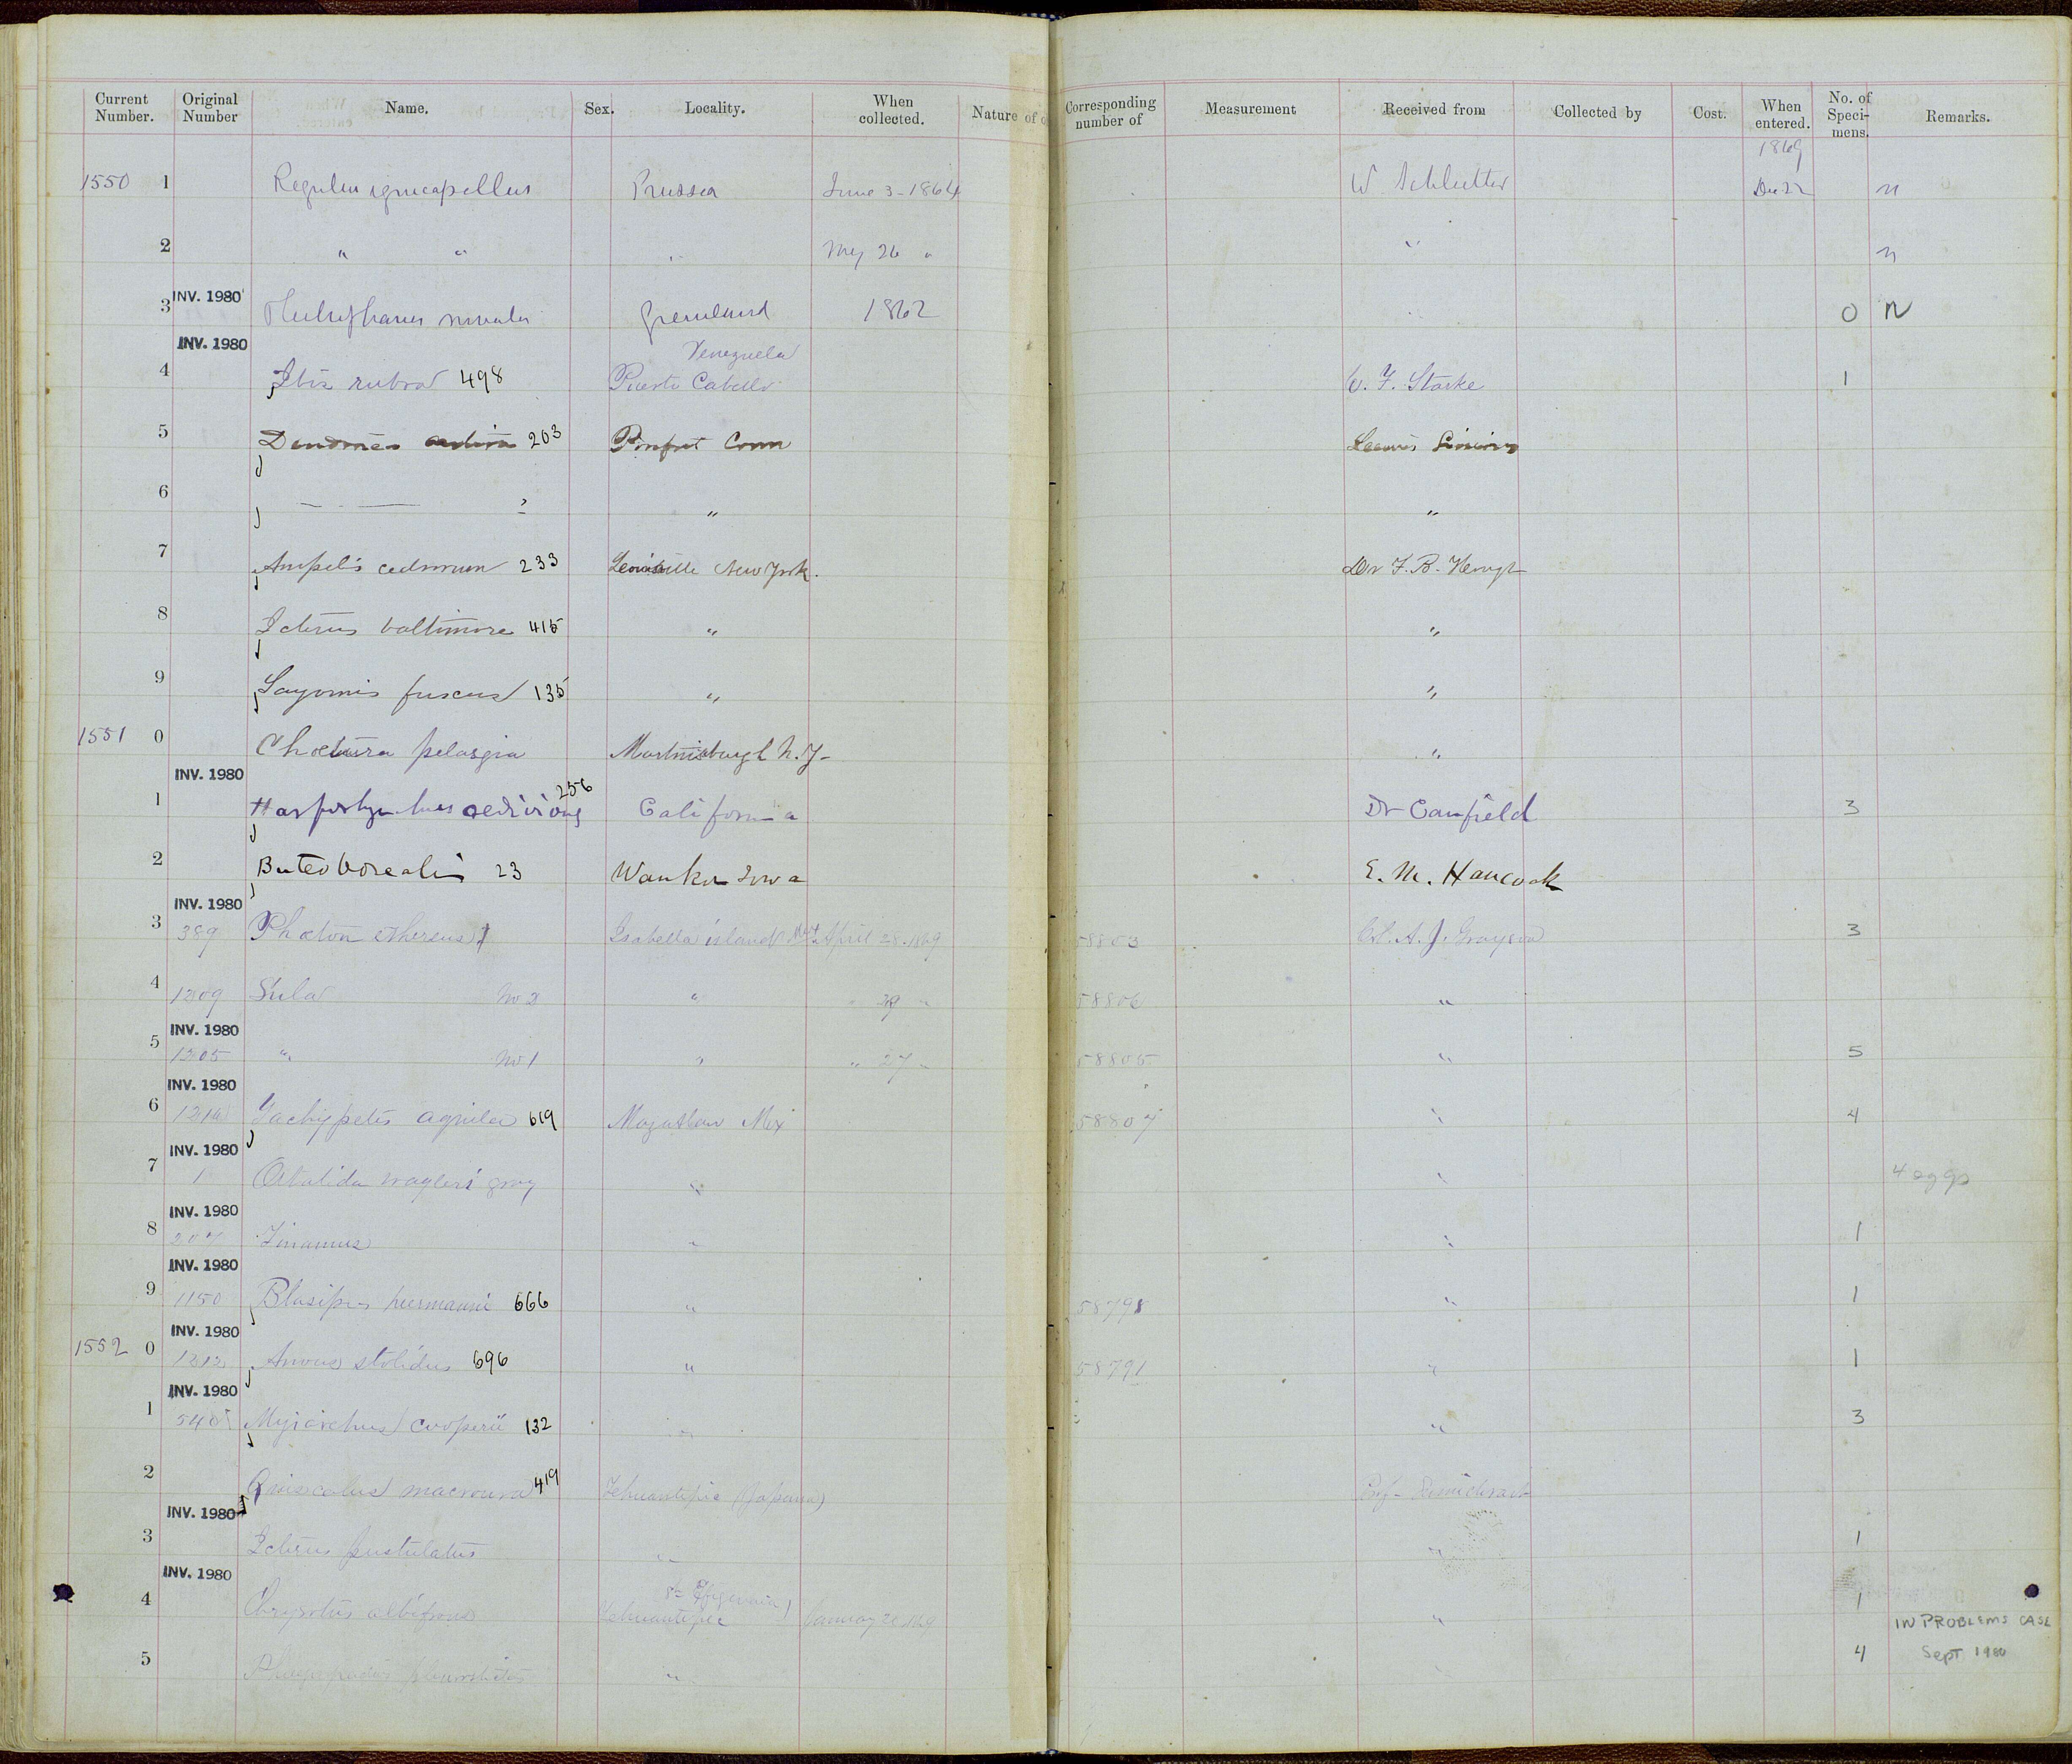 Current Number. Original Number Name. Sex. Locality. When collected. Nature of Corresponding number of Measurement Received from Collected by Cost. When entered. No. of Speci- mens. Remarks.
1869
1550 1 Regulus ignicapellus Prussia June 3-1864 W Schlutter Dec 22 n
2 " " " My 26 " " n
INV. 1980
3 nivalis Greenland 1862 " 0 N
INV. 1980
Venezuela
4 Ibis rubra 498 Puerto Cabello F. Starke 1
5 203 Pomfret Conn
6 " "
7 Ampelis cedrorum 233 New York. Dr F. B. Hough
8 Icterus baltimore 415 " "
9 Sayornis fuscus 135 " "
1551 0 Choetura pelasgia Martinsburgh N.Y- "
INV. 1980
1 Harporhynchus redivivus 256 California Dr Canfield 3
2 Buteo borealis 23 Waukon Iowa E. M. Hancock
INV. 1980
3 389 Phaeton ethereus Isabella island Mex April 28.1869 58803 Col. A. J. Grayson 3
4 1209 Sula No 2 " " " 58806 "
INV. 1980
5 1205 " No 1 " " 27 " 58805 " 5
INV. 1980
6 Tachypetes aquila 619 Mazatlan Mex 58807 " 4
INV. 1980
7 1 Ortalida wagleri gray " " 4 eggs
INV. 1980
8 207 Tinamus " " 1
INV. 1980
9 1150 Blasipus heermanni 666 " 58798 " 1
INV. 1980
1552 0 1212 Anous stolidus 696 " 58791 " 1
INV. 1980
1 540 Myiarchus cooperii 132 " " 3
2 Quiscalus macroura 419 Tehuantepec Sumichrast
INV. 1980
3 Icterus pustulatus " " 1
INV. 1980
4 Chrysotis albifrons Tehuantepec January 1869 " 1
IN PROBLEMS CASE
5 " 4 Sept 1980